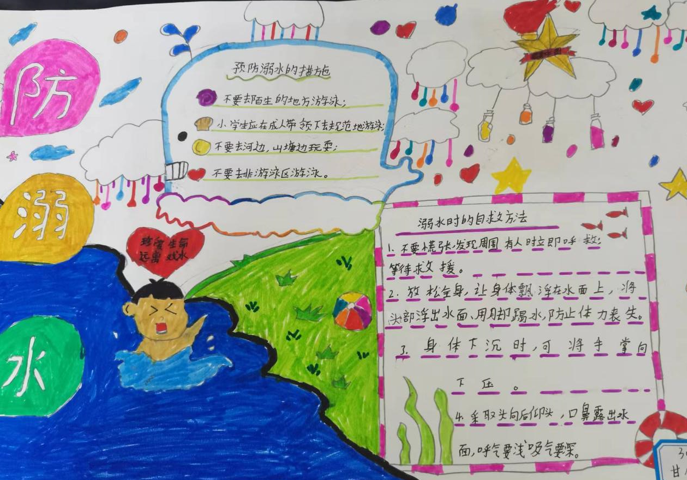 防
溺
水
预防溺水的措施
不要去陌生的地方游泳；
小学生应在成人带领下去规范地游泳；
不要去河边，山塘边玩耍；
不要去非游泳区游泳。
珍爱生命
远离戏水
溺水时的自救方法
1.不要慌张，发现周围有人时立即呼救；
等待救援。
2.放松全身，让身体飘浮在水面上，将
头部浮出水面、用脚踢水，防止体力丧失。
3.身体下沉时，可将手掌向
下压。
4.采取头向后仰头，口鼻露出水
面，呼气要浅吸气要深。